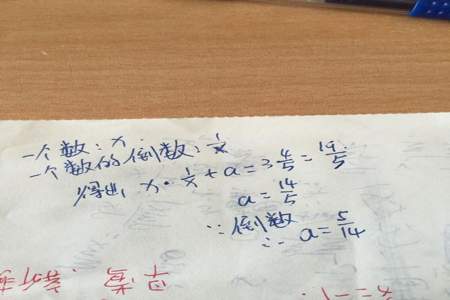 一个数：x.
一个数的倒数：1/x
得出 x·1/x+a=3 4/5=19/5
a=14/5
∵倒数
∴a=5/14